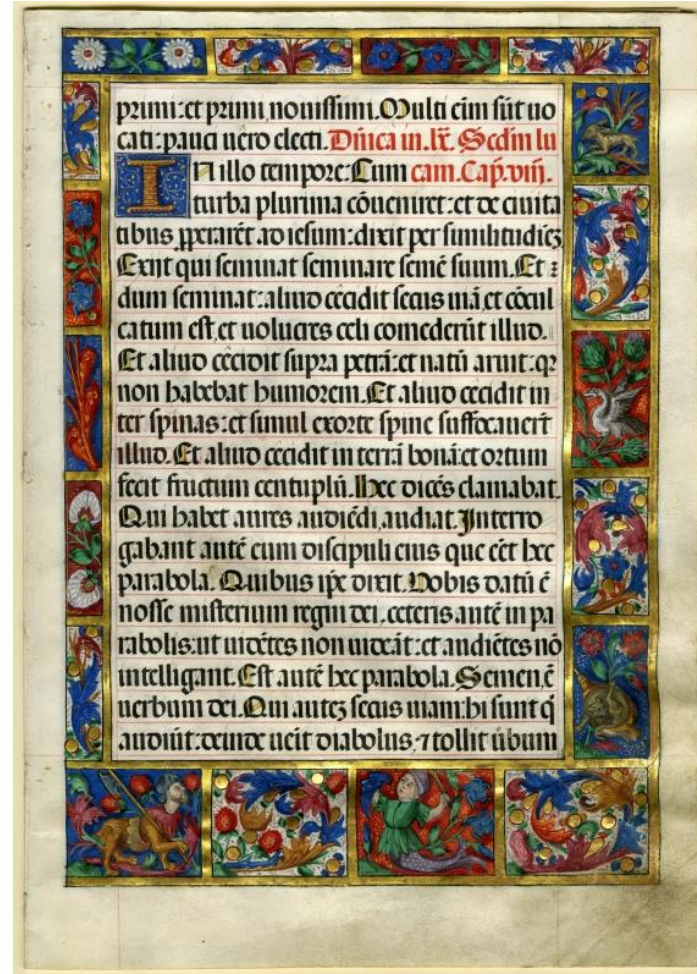 primi:et primi, nouissimi. Multi eim sūt uo
cati: pauci uero electi. Dn̄ica in. lx̄. Scdm̄ lu
IN illo tempore: Cum cam. Cap̄. viij.
turba plurima cōueniret: et de ciuita
tibus ꝓperarēt ad iesum: dixit per similitudiēꝫ
Exijt qui seminat seminare semē suum. Et :
dum seminat: aliud cēcidit secus uiā, et cōcul
catum est, et uolucres celi comederūt illud.
Et aliud cēcidit supra petrā: et natū aruit: qr
non habebat humorem. Et aliud cecidit in
ter spinas: et simul exorte spine suffocauert̄
illud. Et aliud cecidit in terrā bonā: et ortum
fecit fructum centuplū. Hec dicēs clamabat.
Qui habet aures audiēdi, audiat. Interro
gabant autē eum discipuli eius que eēt hec
parabola. Quibus ip̄e dixit. Vobis datū ē
nosse misterium regni dei, ceteris autē in pa
rabolis: ut uidētes non uideāt: et audiētes nō
intelligant. Est autē hec parabola. Semen, ē
uerbum dei. Qui auteꝫ secus uiam: hi sunt q̄
audiūt: deinde ueīt diabolus, ⁊ tollit ūbum